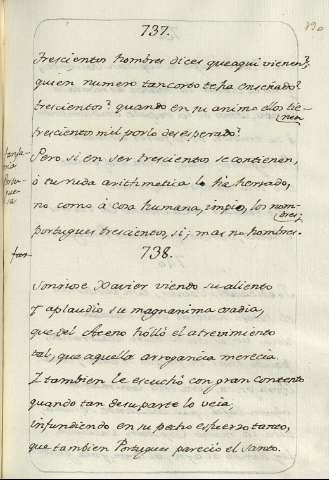 737.
Trescientos hombres dices que aqui vienen?,
quien numero tan corto te ha enseñado?
trescientos? quando en su animo ellos tie-
nen
trescientos mil por lo desesperado?
Pero si en ser trescientos se contienen,
ò tu ruda arithmetica lo ha herrado,
no como à cosa humana, impio, los nom-
bres;
portugues trescientos, si; mas no hombres.
738.
Sonriose Xavier viendo su aliento
Y aplaudio su magnanima osadia,
que del Aceno hòllò el atrevimiento
tal, que aquella arrogancia merecia
Y tambien le escuchò con gran contento
quando tan de su parte lo veia,
infundiendo en su pecho esfuerzo tanto,
que tambien Portugues pareciò el Santo.